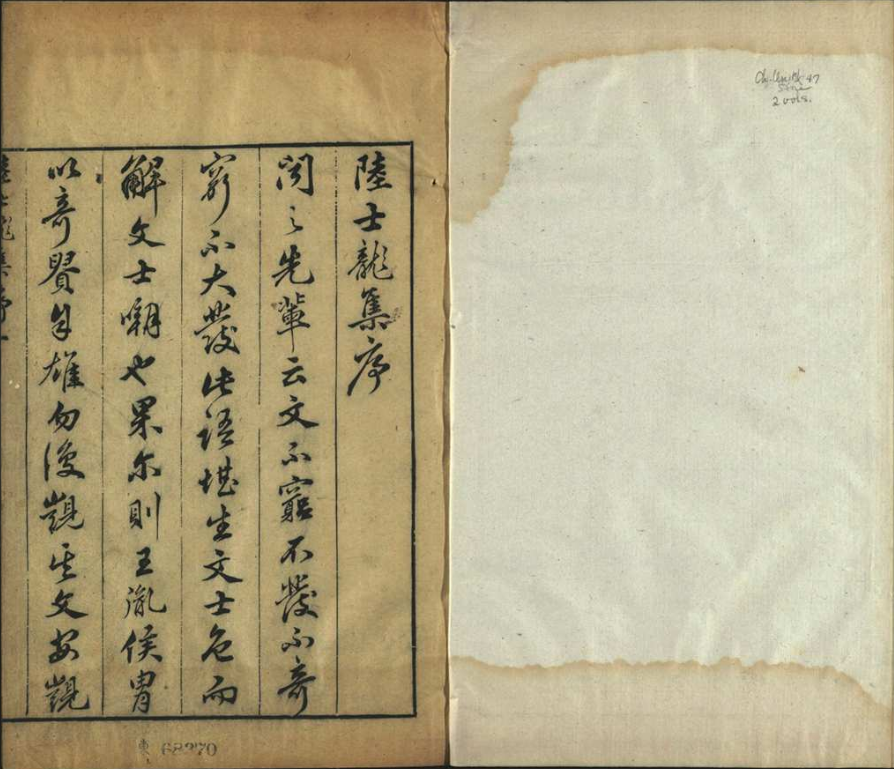 陸士龍集序
聞之先輩云文不窮不發不奇
窮不大發此語堪生文士色而
解文士嘲也果尔則王胤侯胄
以奇賢自雄勿復覬其文安覬
陸士龍集序一
68270
47
2 vols.